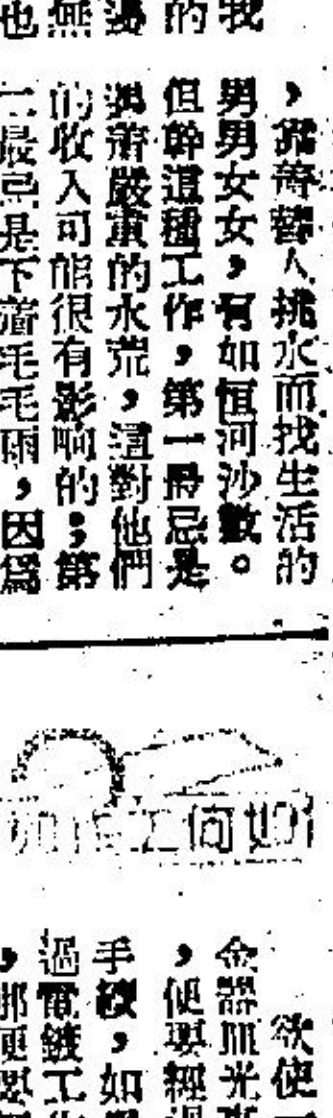 我
的
無
也
，靠着替人挑水而找生活的
男男女女，有如恒河沙數。
但幹這種工作，第一最忌是
着嚴重的水荒，這對他們
的收入可能很有影响的；第
二最忌是下着毛毛雨，因爲
如何
欲使
金器皿光
，便要經
手續，如
過電鍍工
，那便要